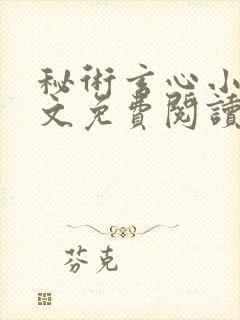 秘術言心小
文免費閱讀
芬克